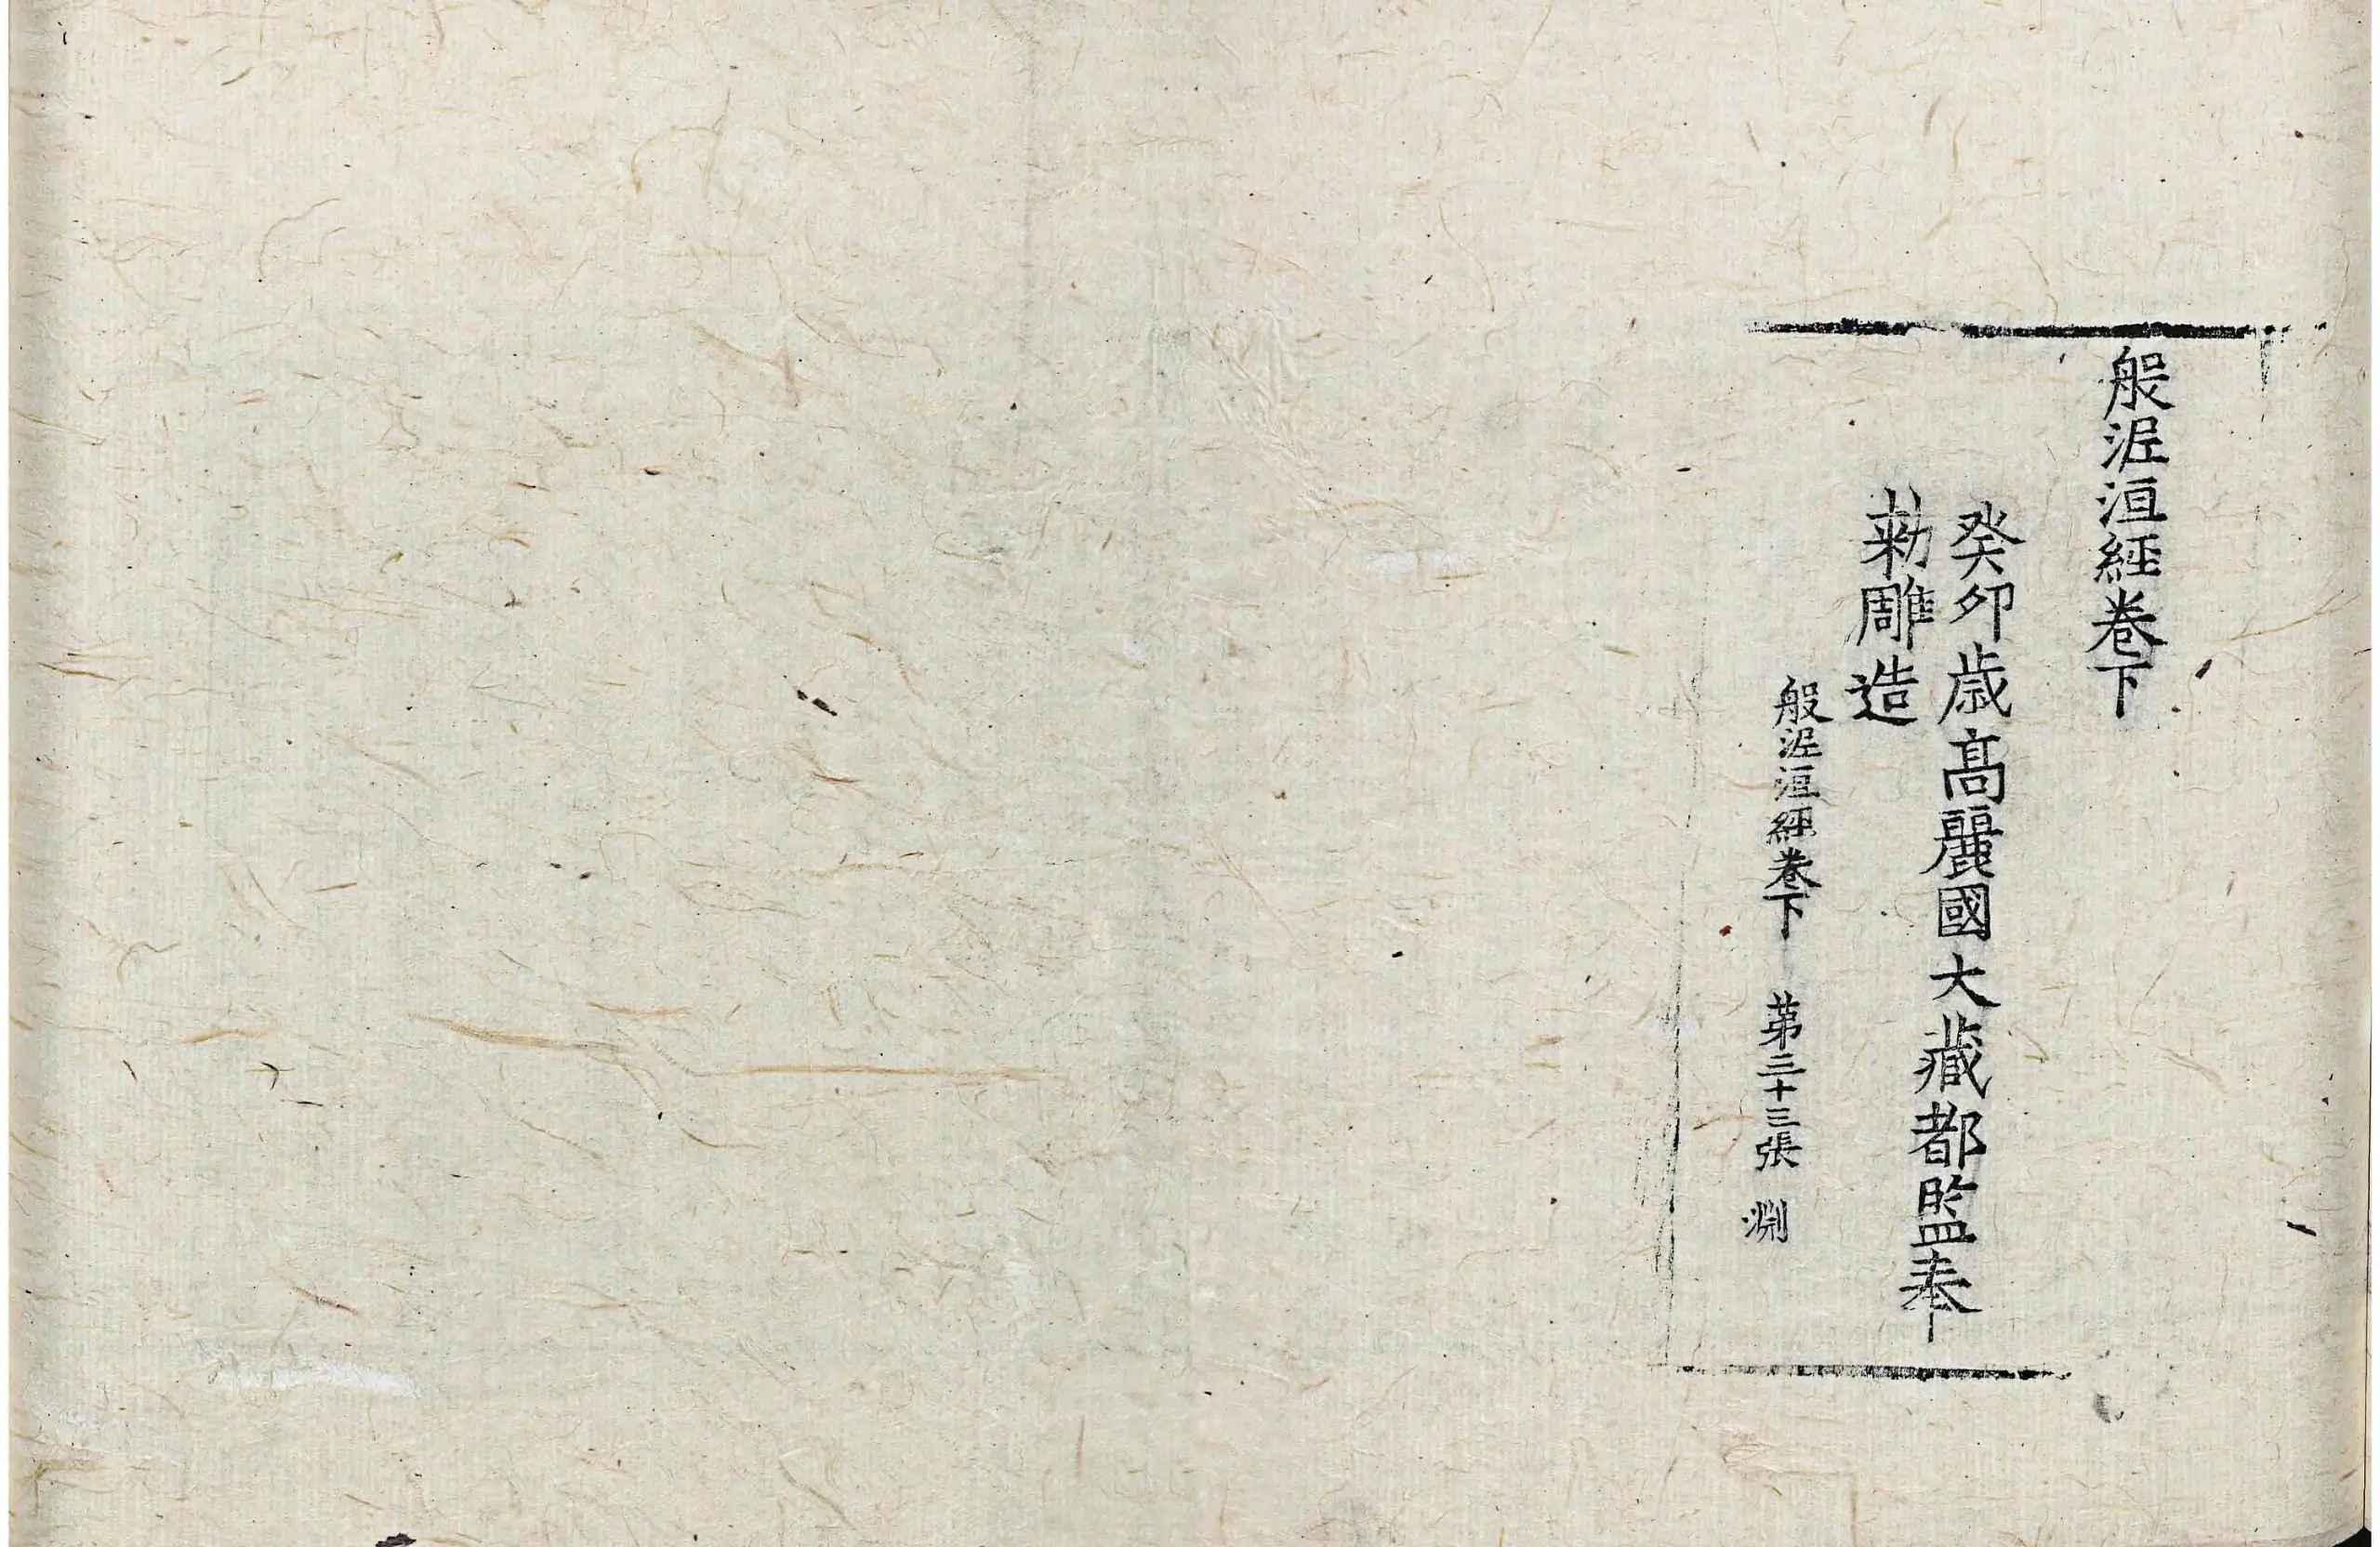 般泥洹經卷下
癸卯歲高麗國大藏都監奉
勅雕造
般泥洹經卷下 第三十三張 淵